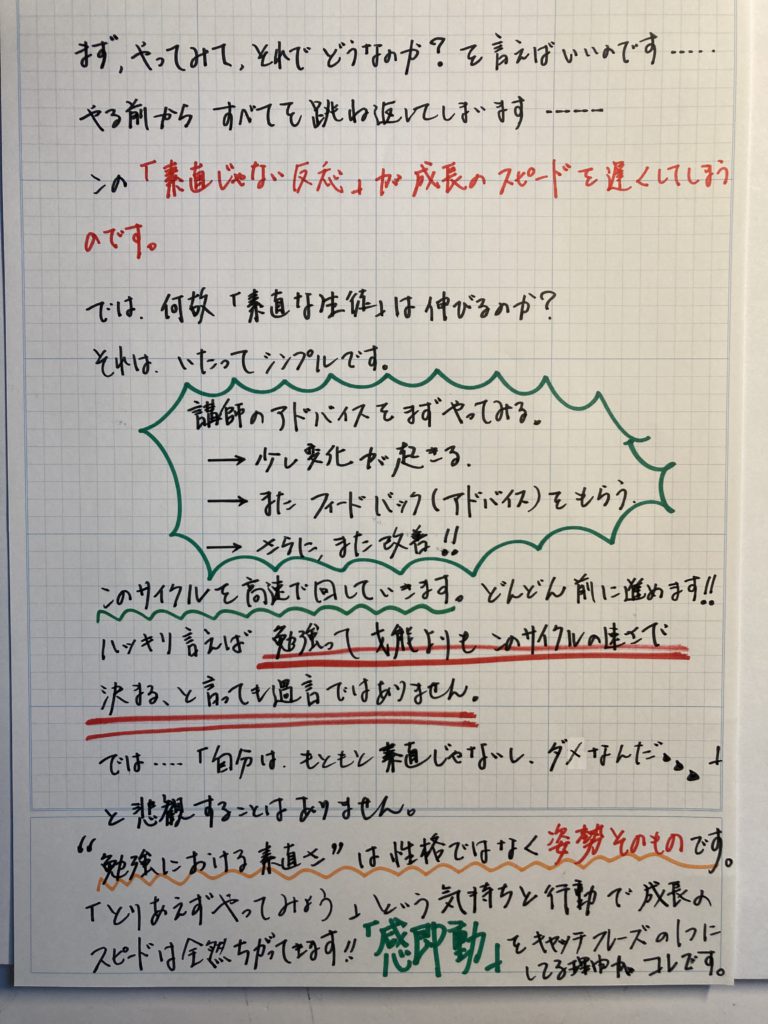 まず,やってみて,それで どうなのか?を言えばいいのです‥‥‥
やる前から すべてを跳ね返してしまいます ------
この「素直じゃない反応」が成長のスピードを遅くしてしまう
のです。
では.何故「素直な生徒」は伸びるのか?
それは.いたってシンプルです。
講師のアドバイスをまずやってみる。
→ 少し変化が起きる.
→ また フィードバック(アドバイス)をもらう.
→ さらに,また改善!!
このサイクルを高速で回していきます。どんどん前に進めます!!
ハッキリ言えば 勉強って才能よりも このサイクルの速さで
決まる、と言っても過言ではありません。
では‥‥「自分は.もともと素直じゃないし、ダメなんだ、、、」
と悲観することはありません。
“勉強における素直さ”は性格ではなく姿勢そのものです。
「とりあえずやってみよう」という気持ちと行動で成長の
スピードは全然ちがってきます!!「感即動」をキャッチフレーズの1つに
してる理由が コレです。